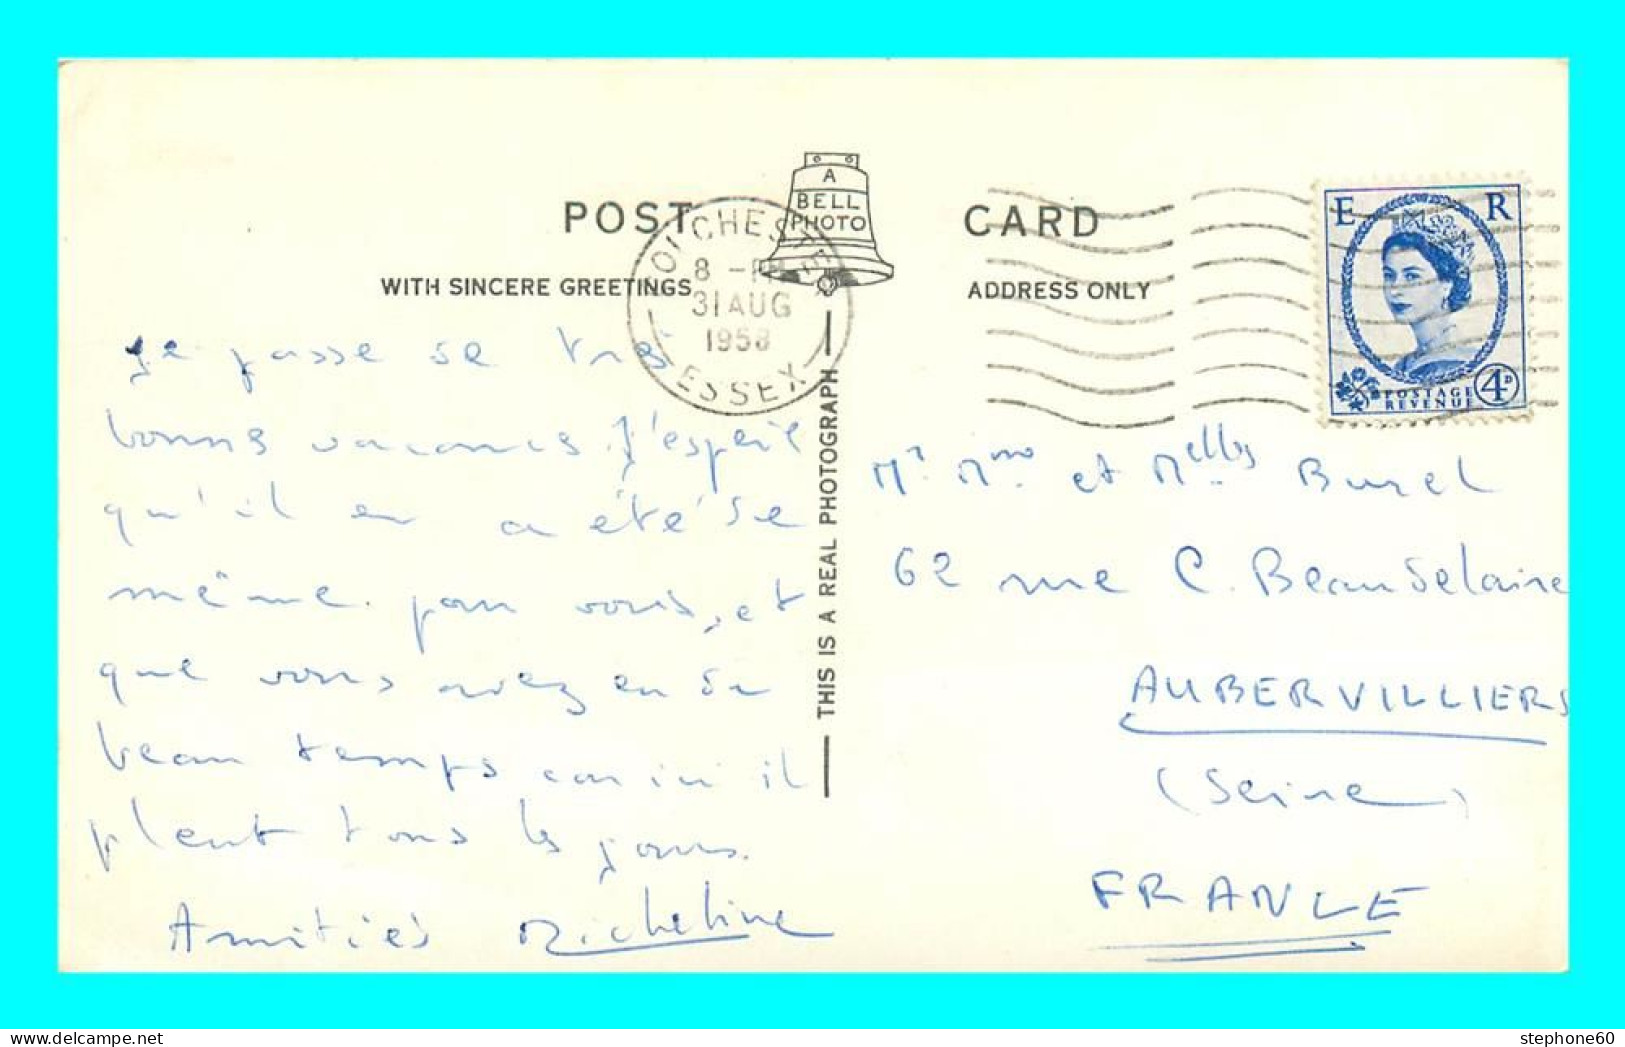 A
BELL
PHOTO
POST CARD
WITH SINCERE GREETINGS
ADDRESS ONLY
COLCHESTER
8 - PM
31 AUG
1958
ESSEX
E R
POSTAGE
REVENUE
4D
THIS IS A REAL PHOTOGRAPH
Je passe de très
bonnes vacances. J'espère
qu'il en a été de
même pour vous, et
que vous avez eu du
beau temps car ici il
pleut tous les jours.
Amitiés Micheline
Mr Mme et Melles Burel
62 rue C. Beaudelaire
AUBERVILLIERS
(Seine)
FRANCE
stephone60